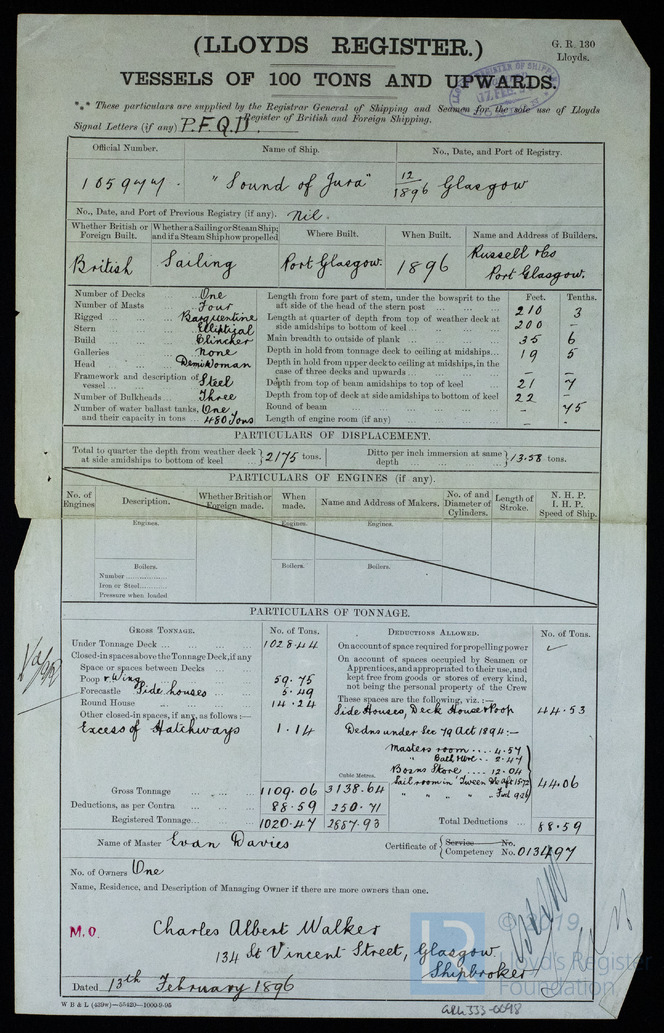 (LLOYDS REGISTER.)
G. R. 130
Lloyds.
VESSELS OF 100 TONS AND UPWARDS.
*** These particulars are supplied by the Registrar General of Shipping and Seamen for the sole use of Lloyds
Register of British and Foreign Shipping.
Signal Letters (if any) P.F.Q.D.
Official Number. Name of Ship. No., Date, and Port of Registry.
105977. "Sound of Jura" 12/1896 Glasgow
No., Date, and Port of Previous Registry (if any). nil.
Whether British or Foreign Built. Whether a Sailing or Steam Ship; and if a Steam Ship how propelled. Where Built. When Built. Name and Address of Builders.
British Sailing Port Glasgow. 1896 Russell & Co Port Glasgow.
Feet. Tenths.
Number of Decks One
Number of Masts Four
Rigged Barquentine
Stern Elliptical
Build Clincher
Galleries None
Head Demi Woman
Framework and description of vessel Steel
Number of Bulkheads Three
Number of water ballast tanks, and their capacity in tons One 480 Tons
Length from fore part of stem, under the bowsprit to the aft side of the head of the stern post 210 3
Length at quarter of depth from top of weather deck at side amidships to bottom of keel 200 –
Main breadth to outside of plank 35 6
Depth in hold from tonnage deck to ceiling at midships 19 5
Depth in hold from upper deck to ceiling at midships, in the case of three decks and upwards – –
Depth from top of beam amidships to top of keel 21 7
Depth from top of deck at side amidships to bottom of keel 22 –
Round of beam – 75
Length of engine room (if any) – .
PARTICULARS OF DISPLACEMENT.
Total to quarter the depth from weather deck at side amidships to bottom of keel 2175 tons. Ditto per inch immersion at same depth 13.58 tons.
PARTICULARS OF ENGINES (if any).
No. of Engines Description. Whether British or Foreign made. When made. Name and Address of Makers. No. of and Diameter of Cylinders. Length of Stroke. N. H. P. I. H. P. Speed of Ship.
Engines. Engines. Engines.
Boilers. Boilers. Boilers.
Number
Iron or Steel
Pressure when loaded
PARTICULARS OF TONNAGE.
GROSS TONNAGE. No. of Tons. DEDUCTIONS ALLOWED. No. of Tons.
Under Tonnage Deck 1028.44
Closed-in spaces above the Tonnage Deck, if any
Space or spaces between Decks
Poop & Wing 59.75
Forecastle Side houses 5.49
Round House 14.24
Other closed-in spaces, if any, as follows:—
Excess of Hatchways 1.14
On account of space required for propelling power
On account of spaces occupied by Seamen or Apprentices, and appropriated to their use, and kept free from goods or stores of every kind, not being the personal property of the Crew
These spaces are the following, viz.:—
Side Houses, Deck House & Poop 44.53
Dedns under Sec 79 Act 1894:—
Masters room 4.57
Bosns Store 12.04
44.06
Cubic Metres.
Gross Tonnage 1109.06 3138.64
Deductions, as per Contra 88.59 250.71
Registered Tonnage 1020.47 2887.93
Total Deductions 88.59
Name of Master Evan Davies Certificate of Service No. Competency No. 013497
No. of Owners One
Name, Residence, and Description of Managing Owner if there are more owners than one.
M.O. Charles Albert Walker
134 St Vincent Street, Glasgow
Shipbroker
Dated 13th February 1896
W B & L (429w)—55420—1000-9-95
© 2019
Lloyd's Register
Foundation.